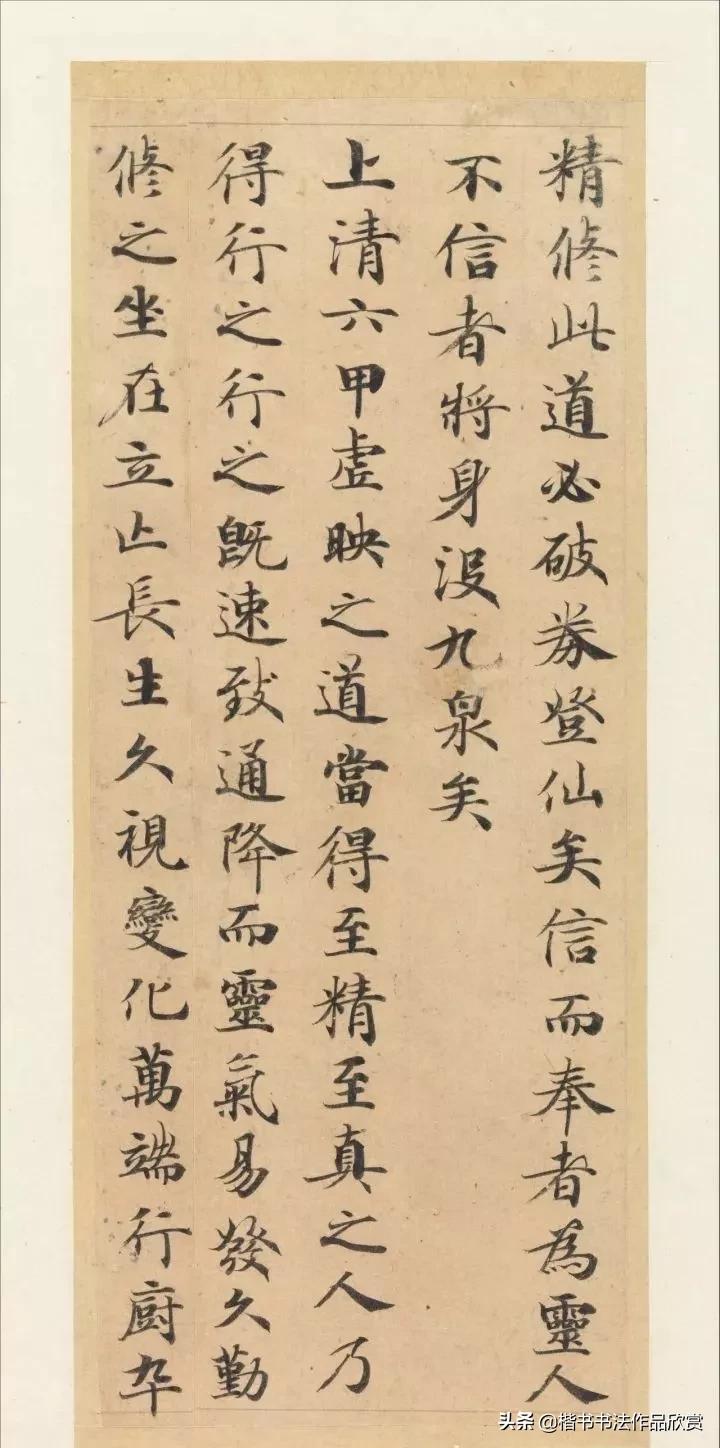 精脩此道必破券登仙矣信而奉者為靈人
不信者將身没九泉矣
上清六甲虚映之道當得至精至真之人乃
得行之行之既速致通降而靈氣易發久勤
脩之坐在立亡長生久視變化萬端行厨卒
头条 @楷书书法作品欣赏